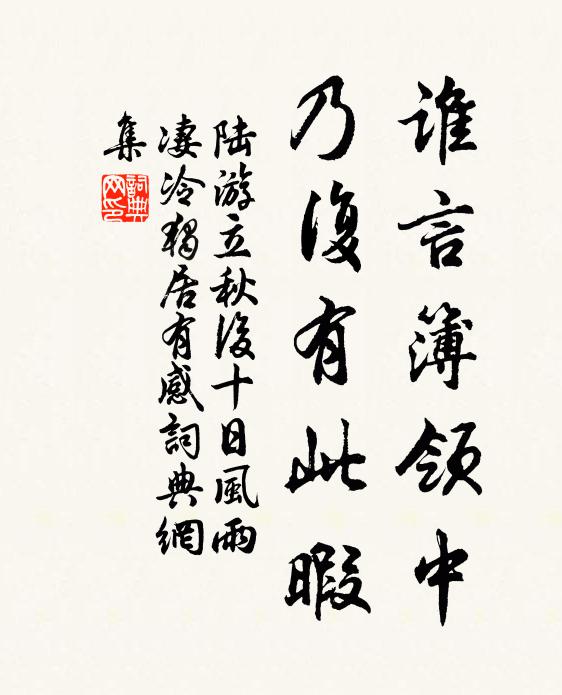 誰言簿領中
乃復有此暇
陆游立秋後十日風雨
凄冷獨居有感詞典網
集
詞典网印